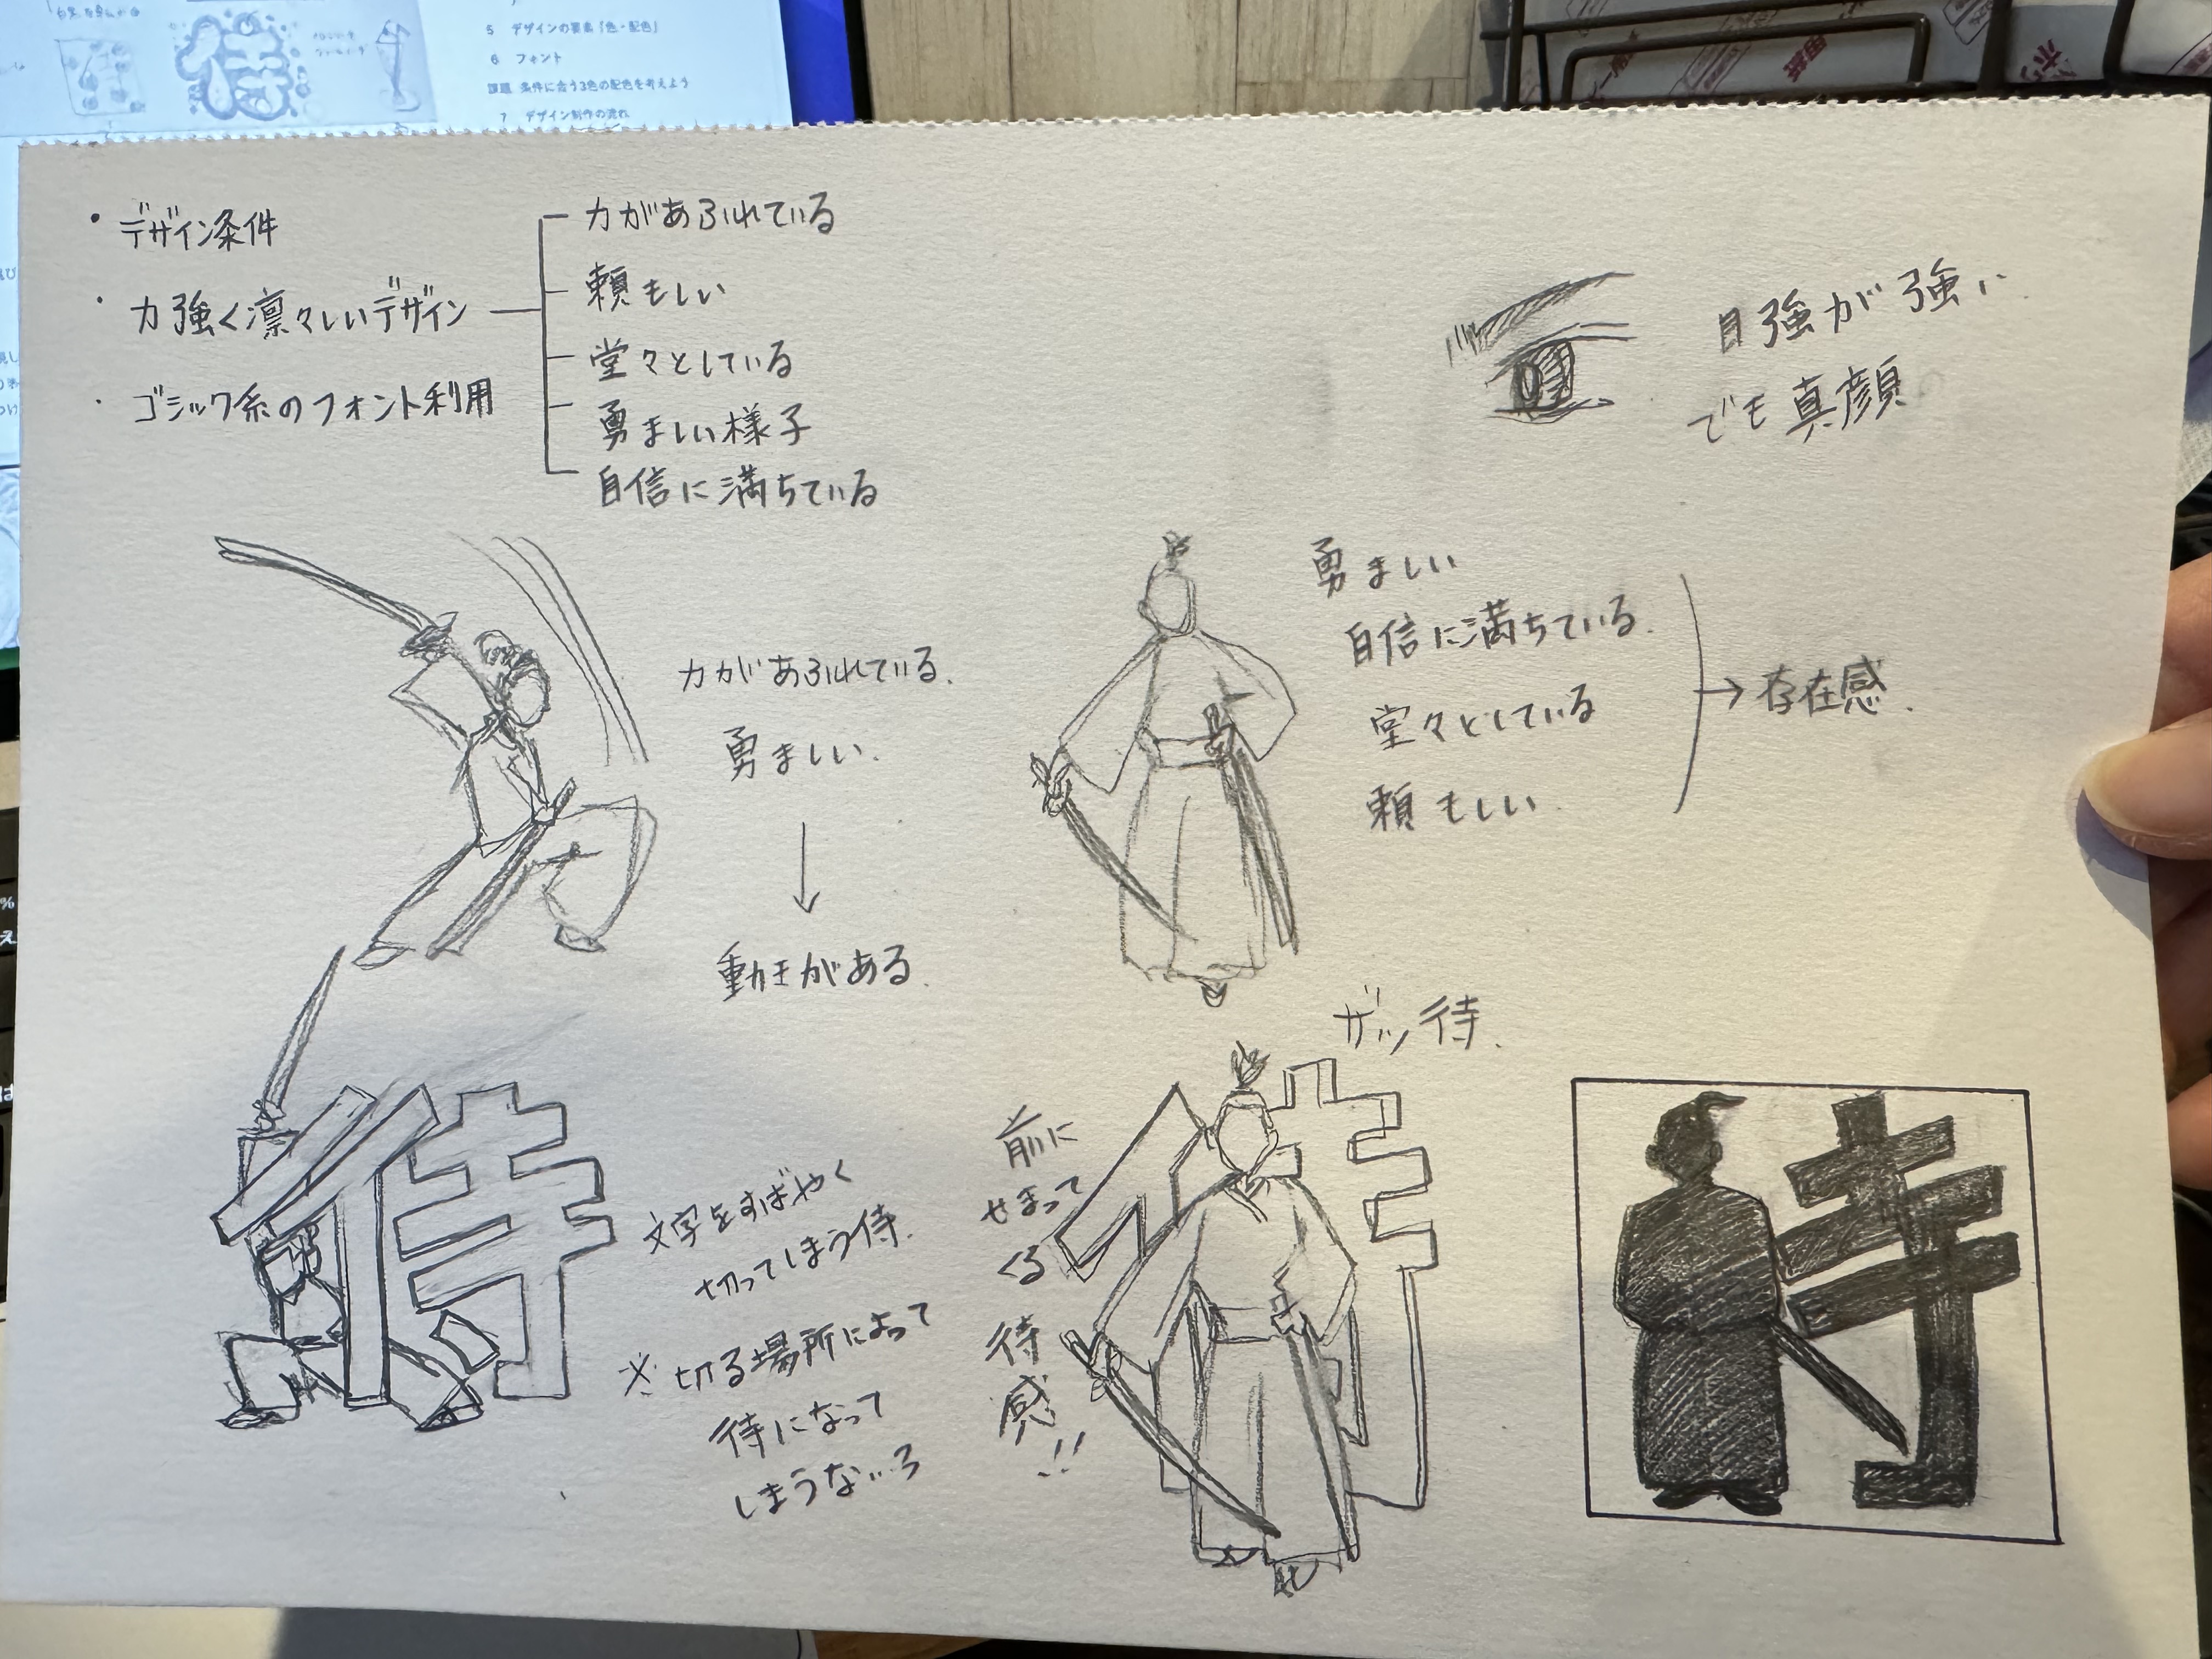 5 デザインの要素「色・配色」
6 フォント
課題 条件に合う3色の配色を考えよう
7 デザイン制作の流れ
・デザイン条件
・力強く凛々しいデザイン
・ゴシック系のフォント利用
力があふれている
頼もしい
堂々としている
勇ましい様子
自信に満ちている
目強が強い
でも真顔
力があふれている.
勇ましい.
動きがある.
勇ましい
自信に満ちている.
堂々としている
頼もしい.
存在感.
侍
文字をすばやく
切ってしまう侍.
※切る場所によって
待になって
ザッ待.
前に
せまって
くる
待
感
!!
侍
寺